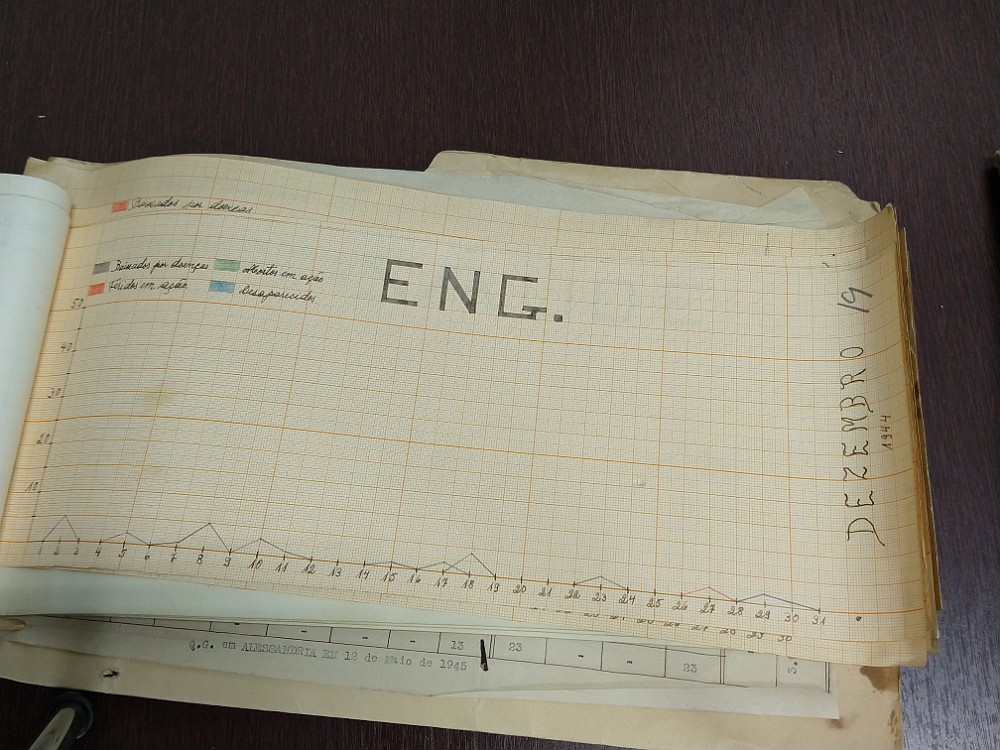 Baixados por doenças
Baixados por doenças
Mortos em ação
Feridos em ação
Desaparecidos
ENG.
DEZEMBRO 19
1944
50
40
30
20
10
1 2 3 4 5 6 7 8 9 10 11 12 13 14 15 16 17 18 19 20 21 22 23 24 25 26 27 28 29 30 31
- - - - - 13 23 - - 23
Q.G. em ALESSANDRIA EM 12 de Maio de 1945